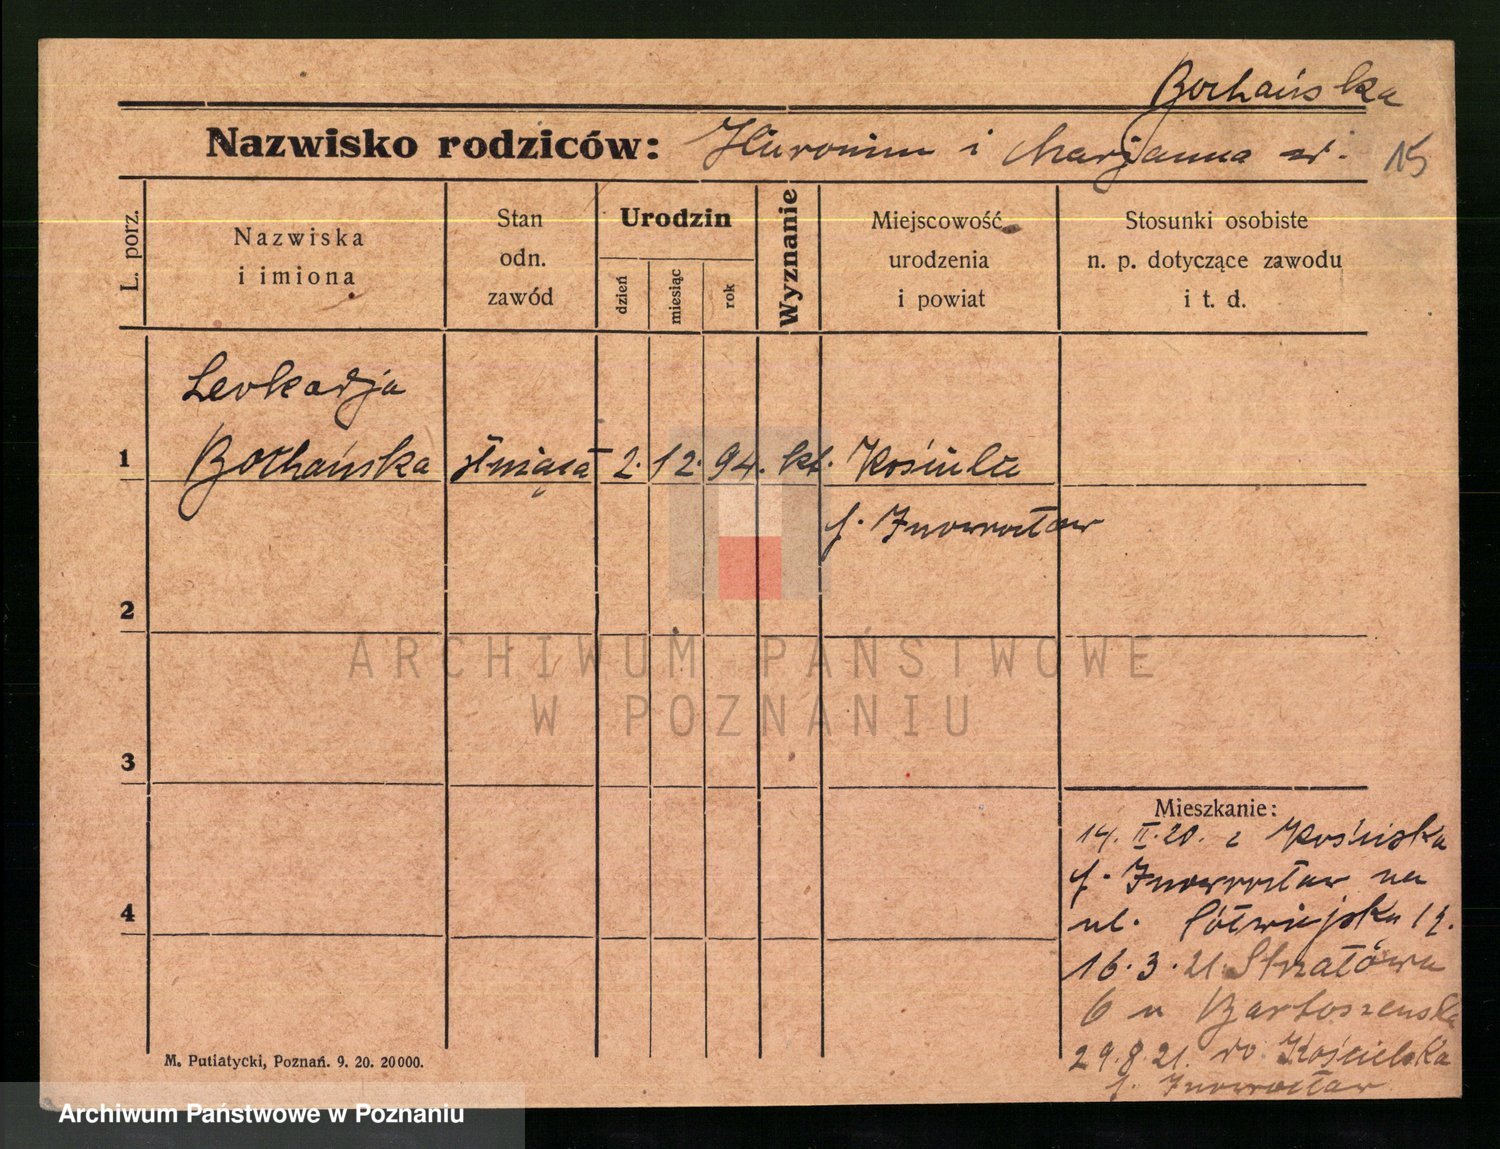 Bochańska
Nazwisko rodziców: Hieronim i Marjanna
15
L. porz.
Nazwiska
i imiona
Stan
odn.
zawód
Urodzin
dzień
miesiąc
rok
Wyznanie
Miejscowość
urodzenia
i powiat
Stosunki osobiste
n. p. dotyczące zawodu
i t. d.
Leokadja
1 Bochańska służąca 2. 12. 94. kt.
p. Inowrocław
2
ARCHIWUM PAŃSTWOWE
W POZNANIU
3
Mieszkanie:
14. II. 20. z
p. Inowrocław na
4
ul. Półwiejska
16. 3. 21. Strzałowa
6 u Bartoszewska
29. 8. 21. do Kościelska
p. Inowrocław
M. Putiatycki, Poznań. 9. 20. 20000.
Archiwum Państwowe w Poznaniu